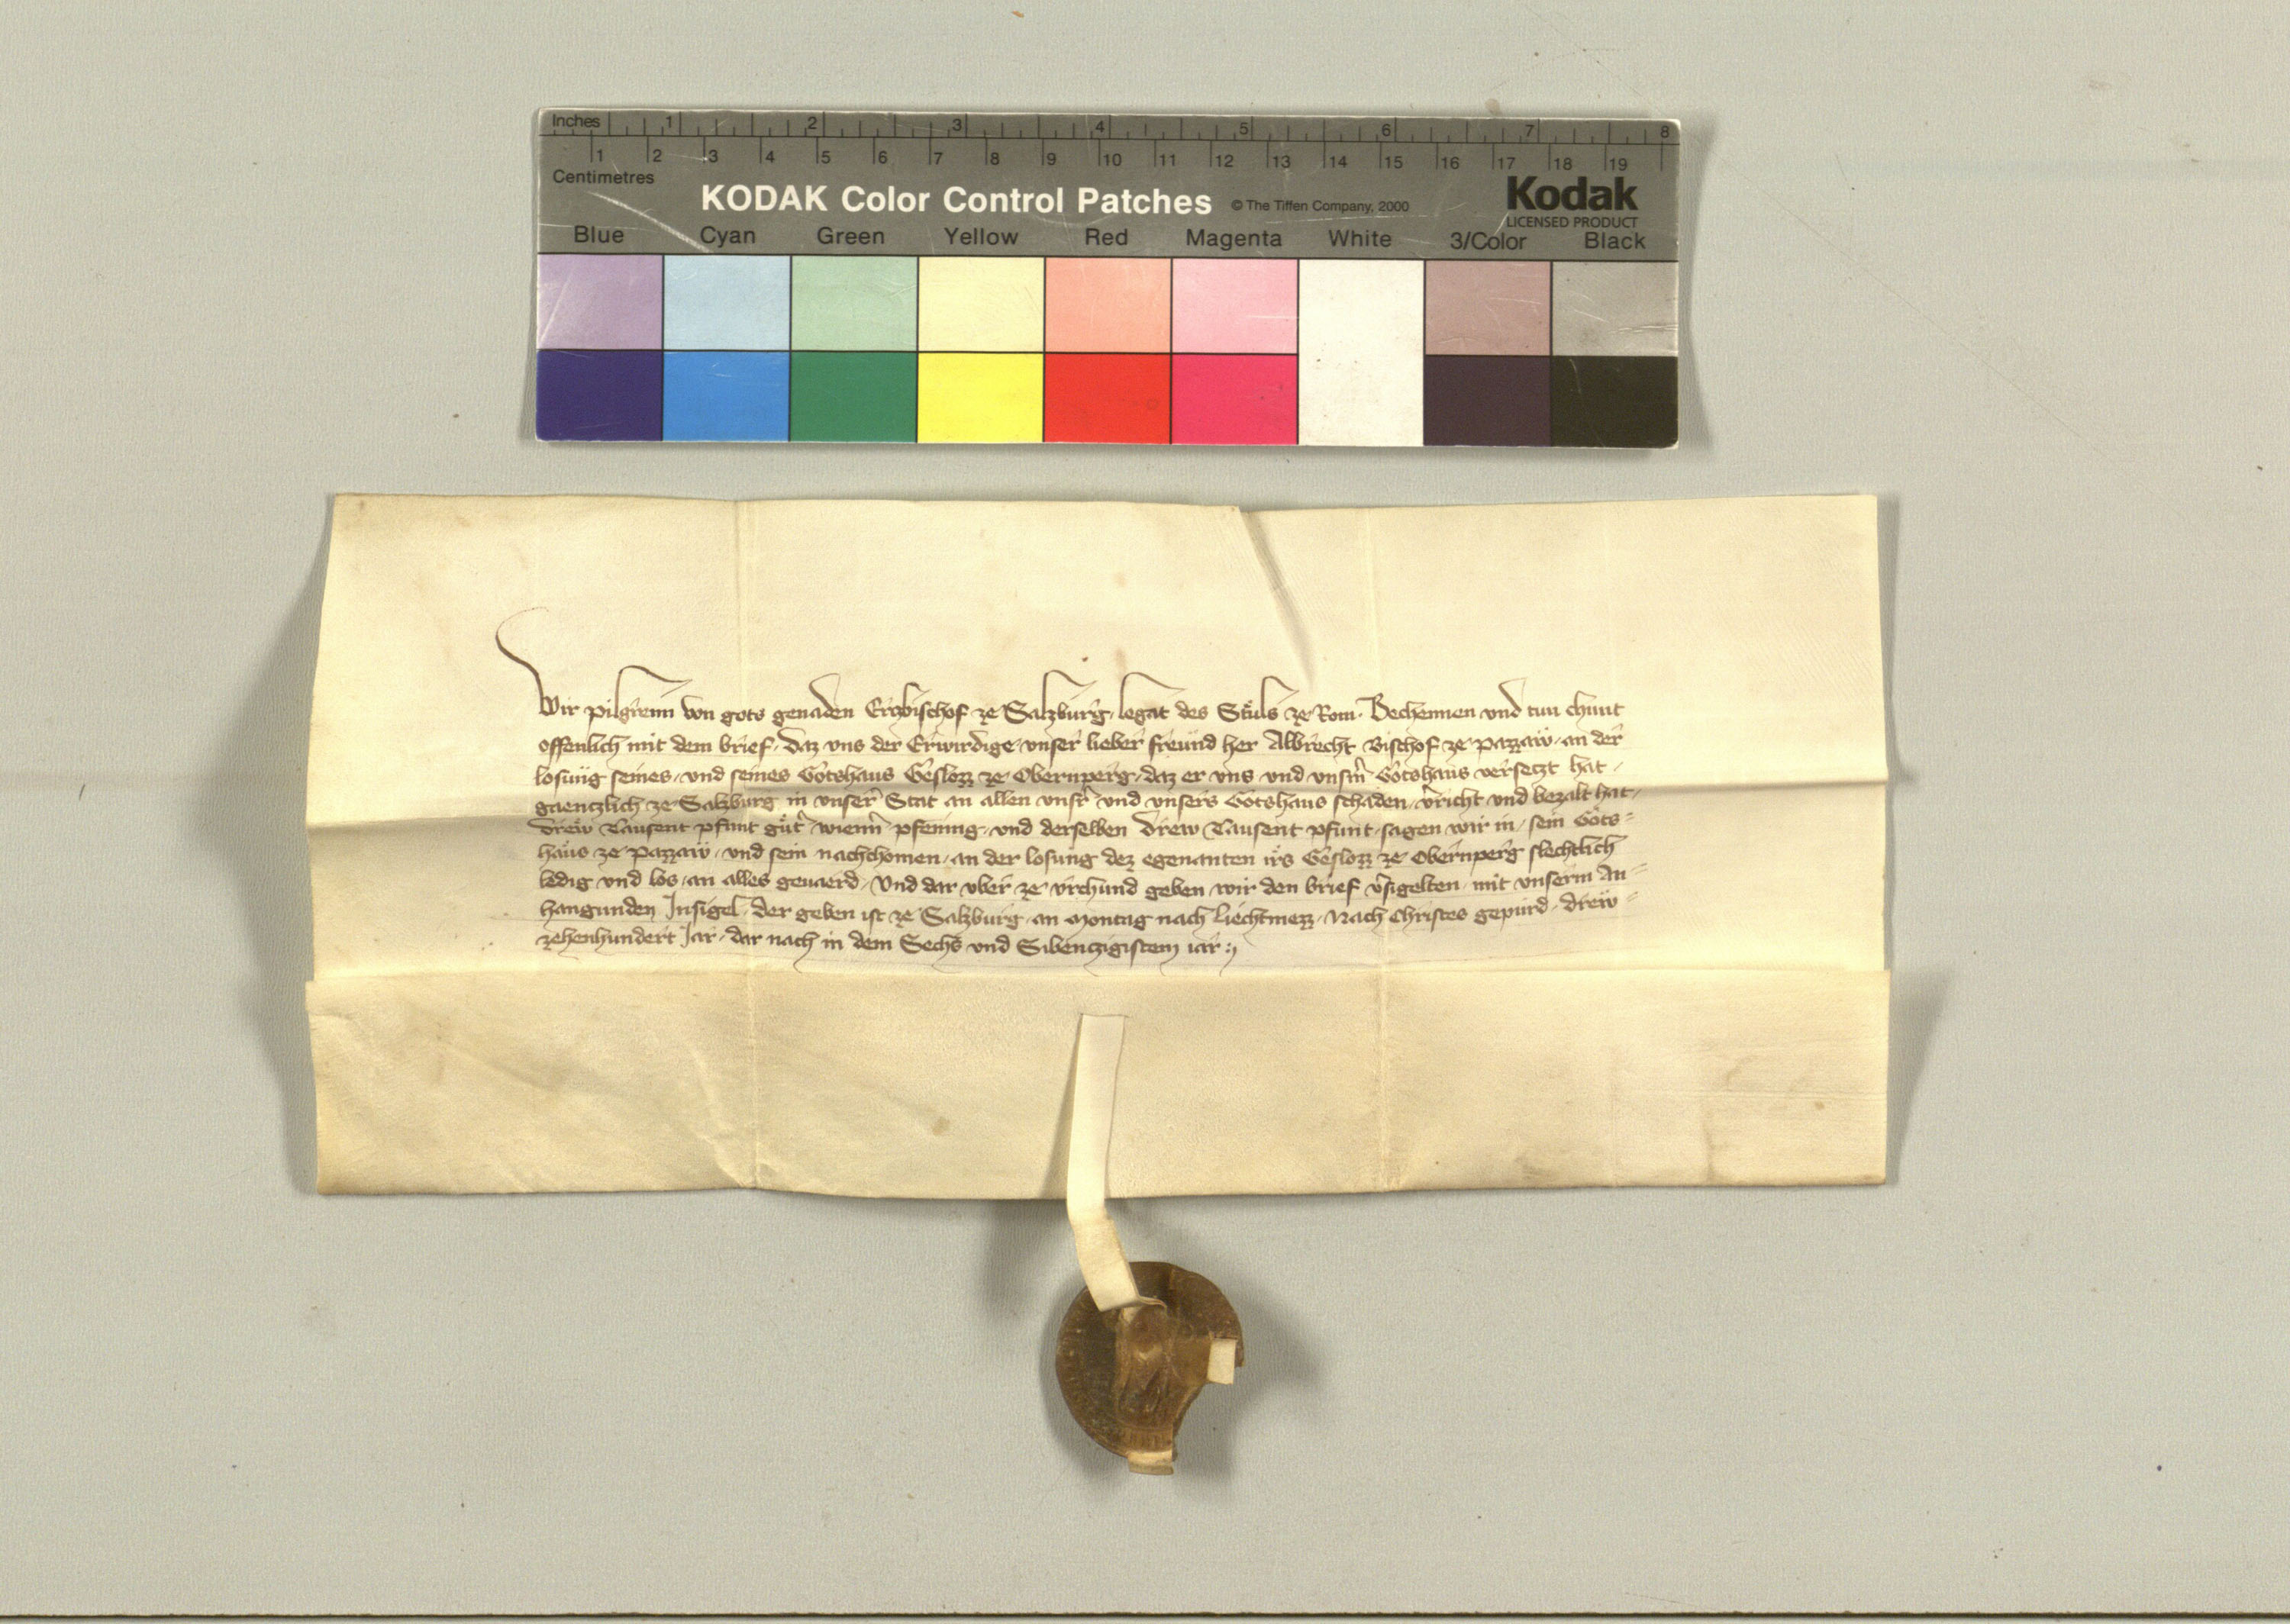 Inches 1 2 3 4 5 6 7 8
1 2 3 4 5 6 7 8 9 10 11 12 13 14 15 16 17 18 19
Centimetres
KODAK Color Control Patches © The Tiffen Company, 2000 Kodak
LICENSED PRODUCT
Blue Cyan Green Yellow Red Magenta White 3/Color Black
Wir pilgreim von gots genaden Erczbischof ze Salzburg, legat des Stuls ze Rom. Bechennen vnd tun chunt
offenlich mit dem brief, daz vns der Erwirdige, vnser lieber freund her Albrecht Bischof ze pazzaw, an der
losung seines, vnd seines Gotshaus Geslozz ze Obernperg, daz er vns vnd vnserm Gotshaus versetzt hat,
gaenczlich ze Salzburg in vnser Stat an allen vnsr vnd vnsers Gotshaus schaden, vericht vnd bezalt hat,
drew Tausent pfunt guter wienner pfening, vnd derselben drew Tausent pfunt, sagen wir in, sein Gots=
haus ze pazzaw, vnd sein nachchomen, an der losung dez egenanten irs Geslozz ze Obernperg slechtlich
ledig vnd los, an alles geuaerd, Vnd dar vber ze vrchund geben wir den brief versigelten, mit vnserm An=
hangunden Insigel, der geben ist ze Salzburg, an Montag nach liechtmezz, Nach Christes gepurd, drew=
zehenhundert Jar, dar nach in dem Sechs vnd Sibenczigistem iar